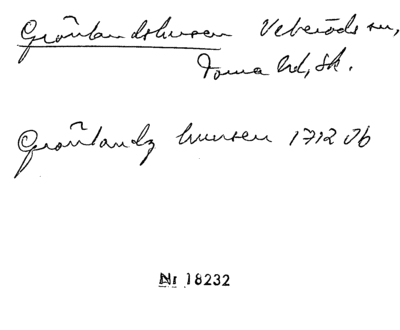 Grönlandshusen Veberöds sn,
Torna hd, Sk.
Grönlandz huusen 1712 Jb
Nr 18232